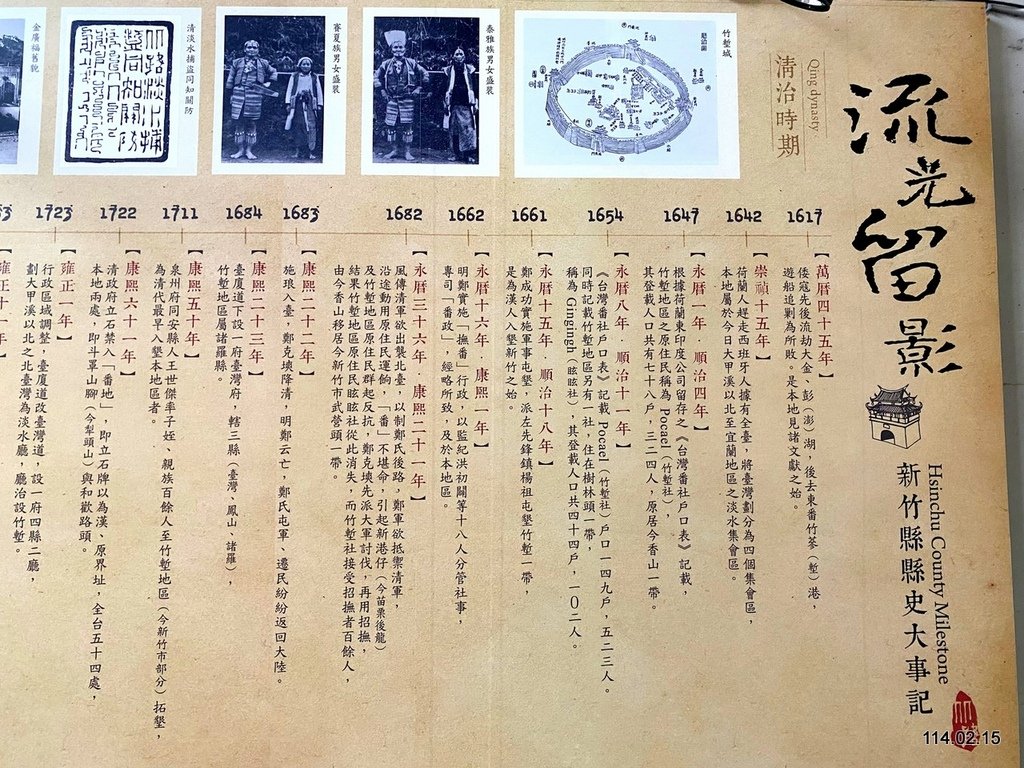 流光留影
新竹縣縣史大事記
Hsinchu County Milestone
Qing dynasty
清治時期
竹塹城
泰雅族男女盛裝
賽夏族男女盛裝
清淡水捕盜同知關防
金廣福舊貌
1617
【萬曆四十五年】
倭寇先後流劫大金、彭（澎）湖，後去東番竹筝（塹）港，
遊船追剿為所敗。是本地見諸文獻之始。
1642
【崇禎十五年】
荷蘭人趕走西班牙人據有全臺，將臺灣劃分為四個集會區，
本地屬於今日大甲溪以北至宜蘭地區之淡水集會區。
1647
【永曆一年．順治四年】
根據荷蘭東印度公司留存之《台灣番社戶口表》記載，
竹塹地區之原住民稱為 Pocael（竹塹社），
其登載人口共有七十八戶，三二四人，原居今香山一帶。
1654
【永曆八年．順治十一年】
《台灣番社戶口表》記載 Pocael（竹塹社）戶口一四九戶，五二三人。
同時記載竹塹地區另有一社，住在樹林頭一帶，
稱為 Gingingh（眩眩社），其登載人口共四十四戶，一０二人。
1661
【永曆十五年．順治十八年】
鄭成功實施軍事屯墾，派左先鋒鎮楊祖屯墾竹塹一帶，
是為漢人入墾新竹之始。
1662
【永曆十六年．康熙一年】
明鄭實施「撫番」行政，以監紀洪初闢等十八人分管社事，
專司「番政」，經略所致，及於本地區。
1682
【永曆三十六年．康熙二十一年】
風傳清軍欲出襲北臺，以制鄭氏後路，鄭軍欲抵禦清軍，
沿途動用原住民運餉，「番」不堪命，引起新港仔（今苗栗後龍）
及竹塹地區原住民群起反抗，鄭克塽先派大軍討伐，再用招撫，
結果竹塹地區原住民眩眩社從此消失，而竹塹社接受招撫者百餘人，
由今香山移居今新竹市武營頭一帶。
1683
【康熙二十二年】
施琅入臺，鄭克塽降清，明鄭云亡，鄭氏屯軍、遷民紛紛返回大陸。
1684
【康熙二十三年】
臺廈道下設一府臺灣府，轄三縣（臺灣、鳳山、諸羅），
竹塹地區屬諸羅縣。
1711
【康熙五十年】
泉州府同安縣人王世傑率子姪、親族百餘人至竹塹地區（今新竹市部分）拓墾，
為清代最早入墾本地區者。
1722
【康熙六十一年】
清政府立石禁入「番地」，即立石牌以為漢、原界址，全台五十四處，
本地兩處，即斗罩山腳（今犁頭山）與和歡路頭。
1723
【雍正一年】
行政區域調整，臺廈道改臺灣道，設一府四縣二廳，
劃大甲溪以北之北臺灣為淡水廳，廳治設竹塹。
【雍正十一年】
114.02.15